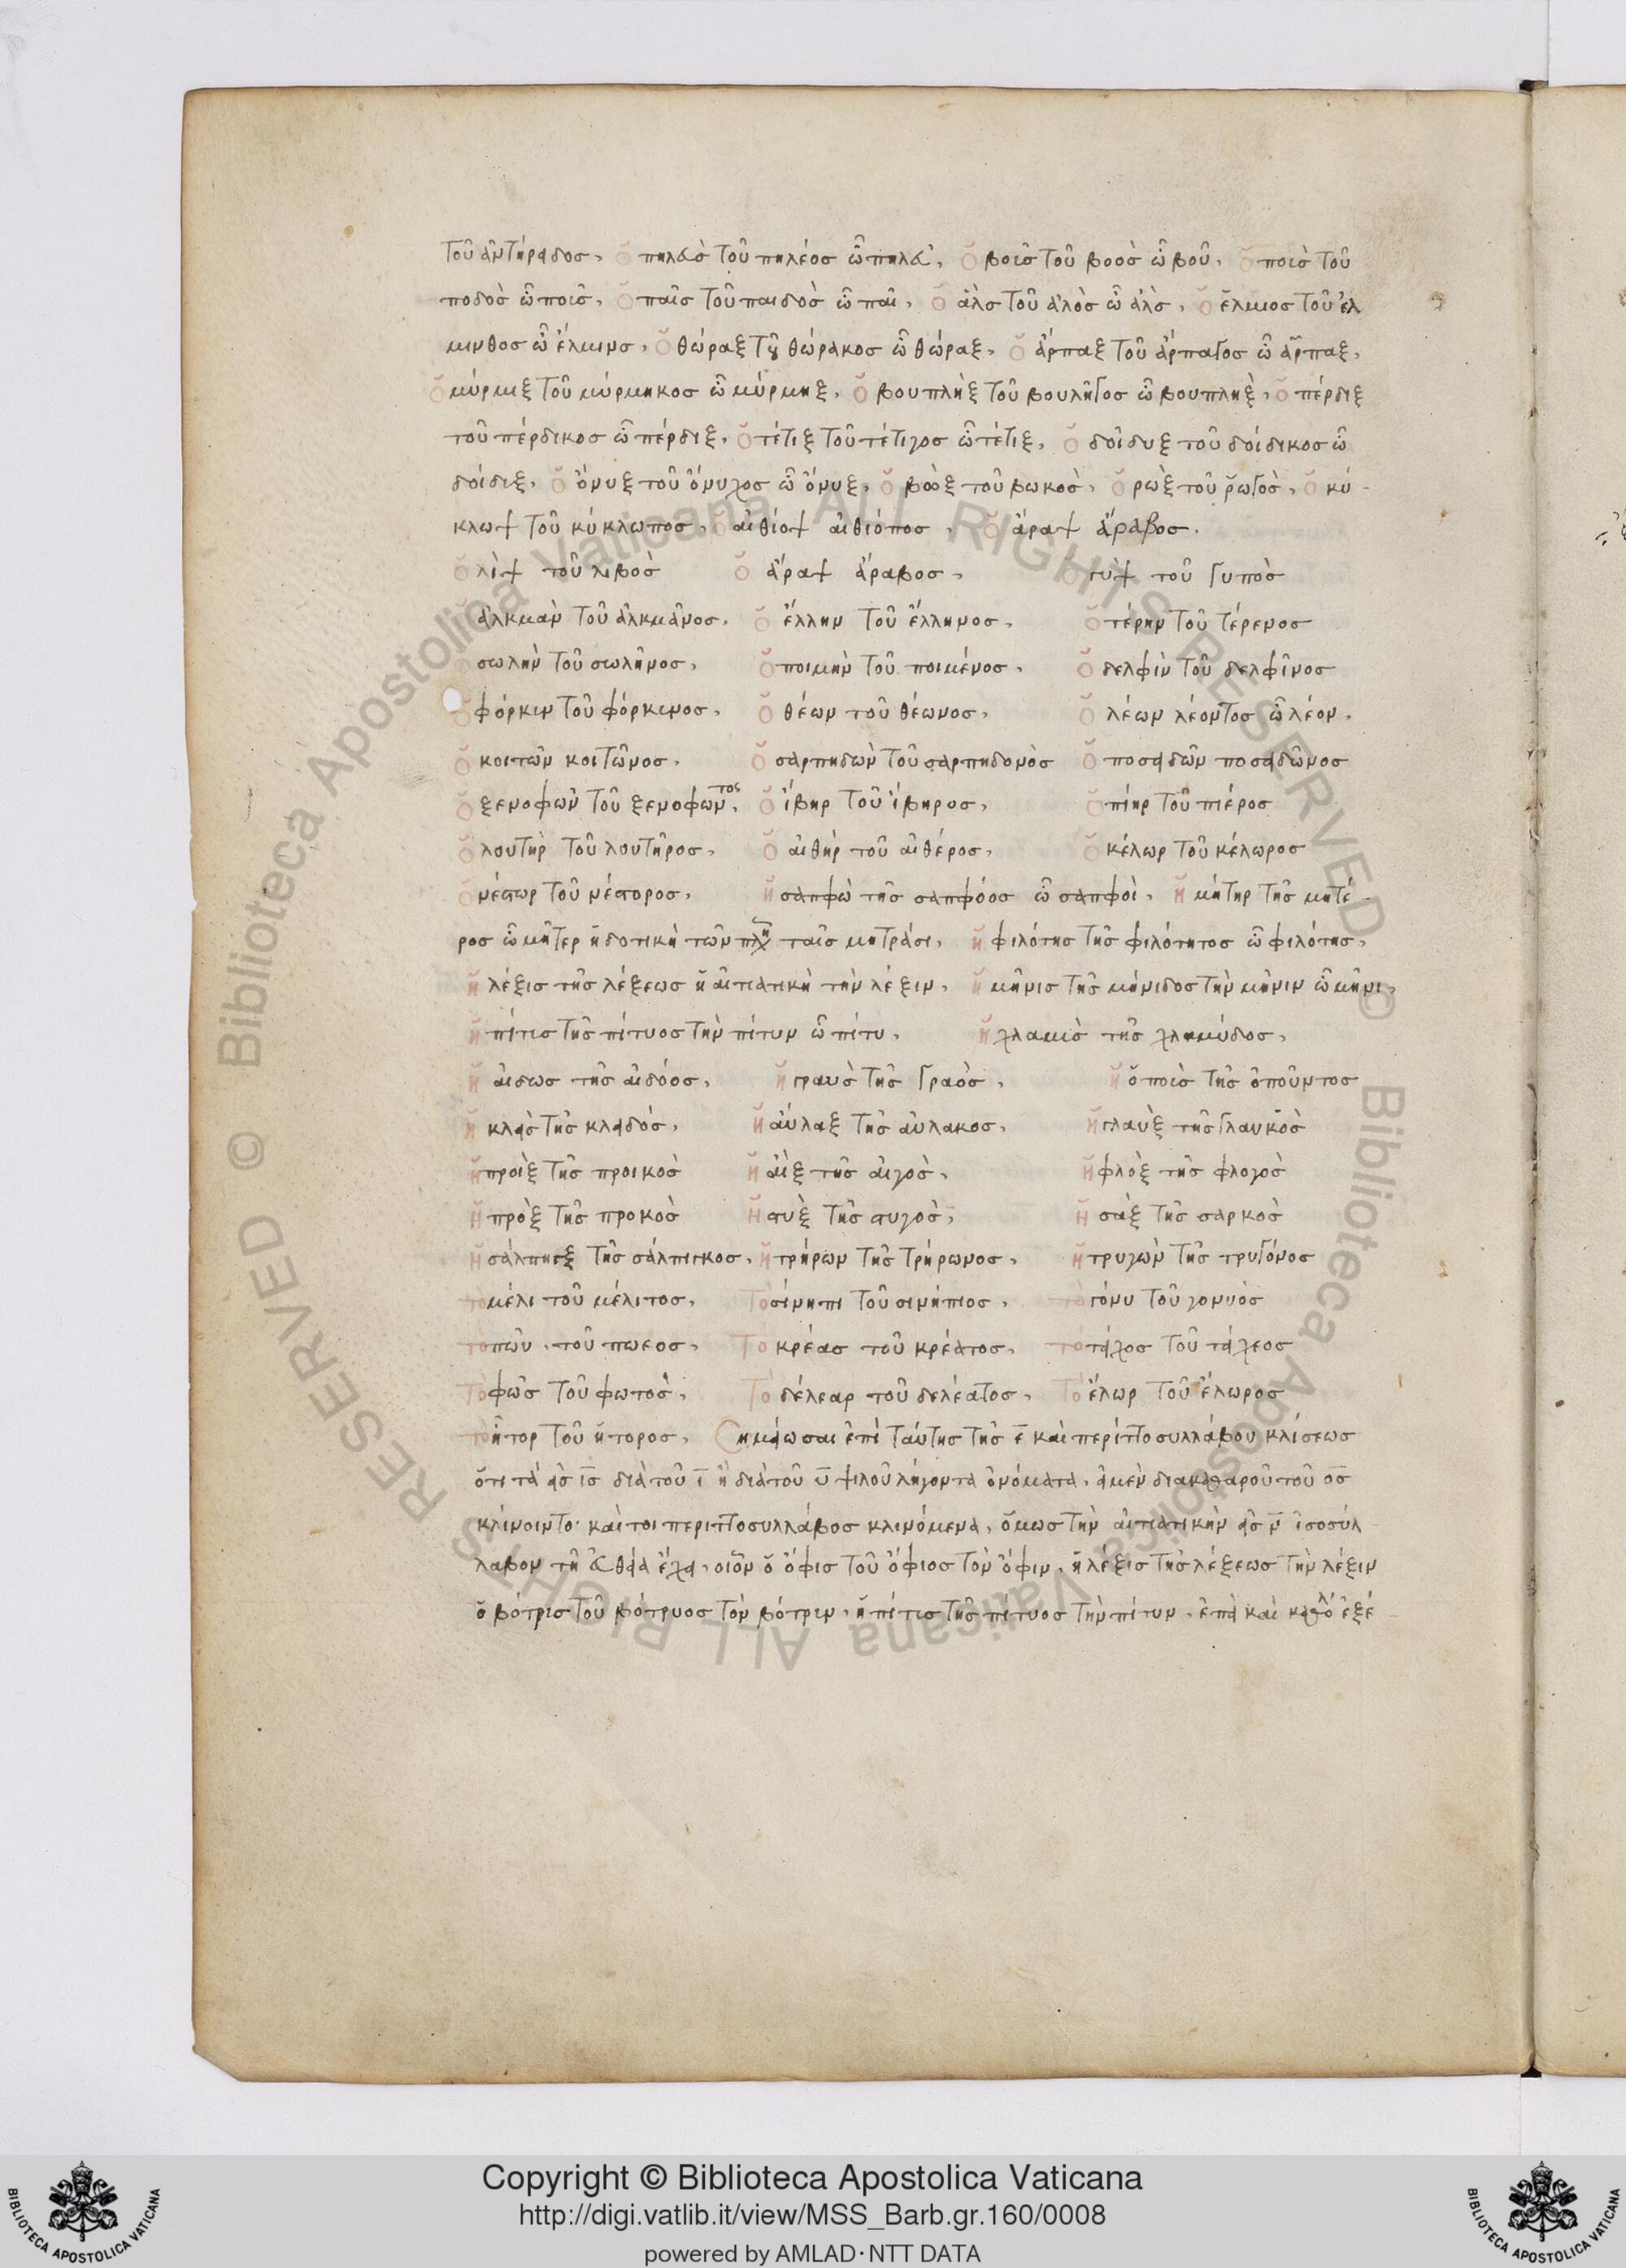 τοῦ ἀντήραδος, ὁ πηλεὺς τοῦ πηλέος ὦ πηλεῦ, ὁ βοῖς τοῦ βοὸς ὦ βοῦ, ὁ ποὶς τοῦ
ποδὸς ὦ ποῖς, ὁ παῖς τοῦ παιδὸς ὦ παῖ, ὁ ἅλς τοῦ ἁλὸς ὦ ἁλς, ὁ ἕλμιος τοῦ ἕλ
μινθος ὦ ἕλμινς, ὁ θώραξ τοῦ θώρακος ὦ θώραξ, ὁ ἅρπαξ τοῦ ἅρπαγος ὦ ἅρπαξ,
ὁ μύρμιξ τοῦ μύρμηκος ὦ μύρμηξ, ὁ βουπλὴξ τοῦ βουλῆγος ὦ βουπληξ, ὁ πέρδιξ
τοῦ πέρδικος ὦ πέρδιξ, ὁ τέτιξ τοῦ τέτιγος ὦ τέτιξ, ὁ δοῖδυξ τοῦ δοίδικος ὦ
δοίδιξ, ὁ ὄνυξ τοῦ ὄνυχος ὦ ὄνυξ, ὁ βὼξ τοῦ βωκὸς, ὁ ρὼξ τοῦ ῥωγὸς, ὁ κύ-
κλωψ τοῦ κύκλωπος, ὁ αἰθίοψ αἰθιόπος, ὁ ἄραψ ἄραβος.
ὁ λὶψ τοῦ λιβὸς ὁ ἄραψ ἄραβος, ὁ γὺψ τοῦ γυπὸς
ὁ ἀλκμὰν τοῦ ἀλκμᾶνος, ὁ ἕλλην τοῦ ἕλληνος, ὁ τέρην τοῦ τέρενος
ὁ σωλὴν τοῦ σωλῆνος, ὁ ποιμὴν τοῦ ποιμένος, ὁ δελφὶν τοῦ δελφῖνος
ὁ φόρκιν τοῦ φόρκινος, ὁ θέων τοῦ θέωνος, ὁ λέων λέοντος ὦ λέον,
ὁ κοιτῶν κοιτῶνος, ὁ σαρπηδὼν τοῦ σαρπηδονὸς ὁ ποσειδῶν ποσειδῶνος
ὁ ξενοφῶν τοῦ ξενοφῶντος, ὁ ἴβηρ τοῦ ἴβηρος, ὁ πίηρ τοῦ πιέρος
ὁ λουτὴρ τοῦ λουτῆρος, ὁ αἰθὴρ τοῦ αἰθέρος, ὁ κέλωρ τοῦ κέλωρος
ὁ νέστωρ τοῦ νέστορος, ἡ σαπφὼ τῆς σαπφόος ὦ σαπφοὶ, ἡ μήτηρ τῆς μητέ-
ρος ὦ μῆτερ ἡ δοτικὴ τῶν πλη ταῖς μητράσι, ἡ φιλότης τῆς φιλότητος ὦ φιλότης,
ἡ λέξις τῆς λέξεως ἡ αἰτιατικὴ τὴν λέξιν, ἡ μῆνις τῆς μήνιδος τὴν μῆνιν ὦ μῆνι,
ἡ πίτις τῆς πίτυος τὴν πίτυν ὦ πίτυ, ἡ χλαμὶς τῆς χλαμύδος,
ἡ αἰδὼς τῆς αἰδόος, ἡ γραυς τῆς γραὸς, ἡ ὀποὶς τῆς ὀποῦντος
ἡ κλεὶς τῆς κλειδὸς, ἡ αὖλαξ τῆς αὔλακος, ἡ γλαὺξ τῆς γλαυκὸς
ἡ προὶξ τῆς προικὸς ἡ αἲξ τῆς αἰγὸς, ἡ φλὸξ τῆς φλογὸς
ἡ πρὸξ τῆς προκὸς ἡ στὺξ τῆς στυγὸς, ἡ σὰξ τῆς σαρκὸς
ἡ σάλπιγξ τῆς σάλπιγκος, ἡ τρήρων τῆς τρήρωνος, ἡ τρυγὼν τῆς τρυγόνος
τὸ μέλι τοῦ μέλιτος, τὸ σίνηπι τοῦ σινήπιος, τὸ γόνυ τοῦ γονυὸς
τὸ πῶυ, τοῦ πώεος, τὸ κρέας τοῦ κρέατος, τὸ τάχος τοῦ τάχεος
τὸ φῶς τοῦ φωτὸς, τὸ δέλεαρ τοῦ δελέατος, τὸ ἕλωρ τοῦ ἕλωρος
τὸ ἦτορ τοῦ ἤτορος, Σημείωσαι ἐπὶ ταύτης τῆς ε καὶ περίττοσυλλάβου κλίσεως
ὅτι τὰ εἰς ις διὰ τοῦ ι ἢ διὰ τοῦ υ ψιλοῦ λήγοντα ὀνόματα, εἰ μὲν διακαθαροῦ τοῦ ος
κλίνοιντο καὶ τοι περιττοσυλλάβος κλινόμενα, ὅμως τὴν αἰτιατικὴν εἰς ν ἰσοσύλ
λαβον τῆ εὐθεία ἔχει, οἷον ὁ ὄφις τοῦ ὄφιος τὸν ὄφιν, ἡ λέξις τῆς λέξεως τὴν λέξιν
ὁ βότρις τοῦ βότρυος τὸν βότριν, ἡ πίτις τῆς πίτυος τὴν πίτυν, ἐπεὶ καὶ καθόλο ἐξέ-
Copyright © Biblioteca Apostolica Vaticana
http://digi.vatlib.it/view/MSS_Barb.gr.160/0008
powered by AMLAD·NTT DATA